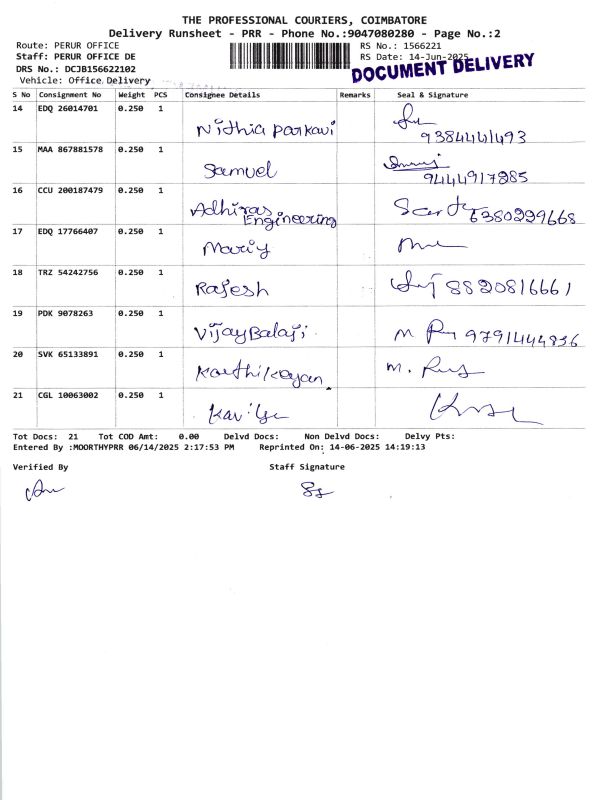 THE PROFESSIONAL COURIERS, COIMBATORE
Delivery Runsheet - PRR - Phone No.:9047080280 - Page No.:2
Route: PERUR OFFICE RS No.: 1566221
Staff: PERUR OFFICE DE RS Date: 14-Jun-2025
DRS No.: DCJB156622102 DOCUMENT DELIVERY
Vehicle: Office Delivery
S No Consignment No Weight PCS Consignee Details Remarks Seal & Signature
14 EDQ 26014701 0.250 1
Nithia Parkavi 9384441493
15 MAA 867881578 0.250 1
Samuel 9444917285
16 CCU 200187479 0.250 1
Adhiras
Engineering 6380229668
17 EDQ 17766407 0.250 1
18 TRZ 54242756 0.250 1
Rajesh 8820816661
19 PDK 9078263 0.250 1
Vijay Balaji 9791444836
20 SVK 65133891 0.250 1
Karthikeyan
21 CGL 10063002 0.250 1
Tot Docs: 21 Tot COD Amt: 0.00 Delvd Docs: Non Delvd Docs: Delvy Pts:
Entered By :MOORTHYPRR 06/14/2025 2:17:53 PM Reprinted On: 14-06-2025 14:19:13
Verified By Staff Signature